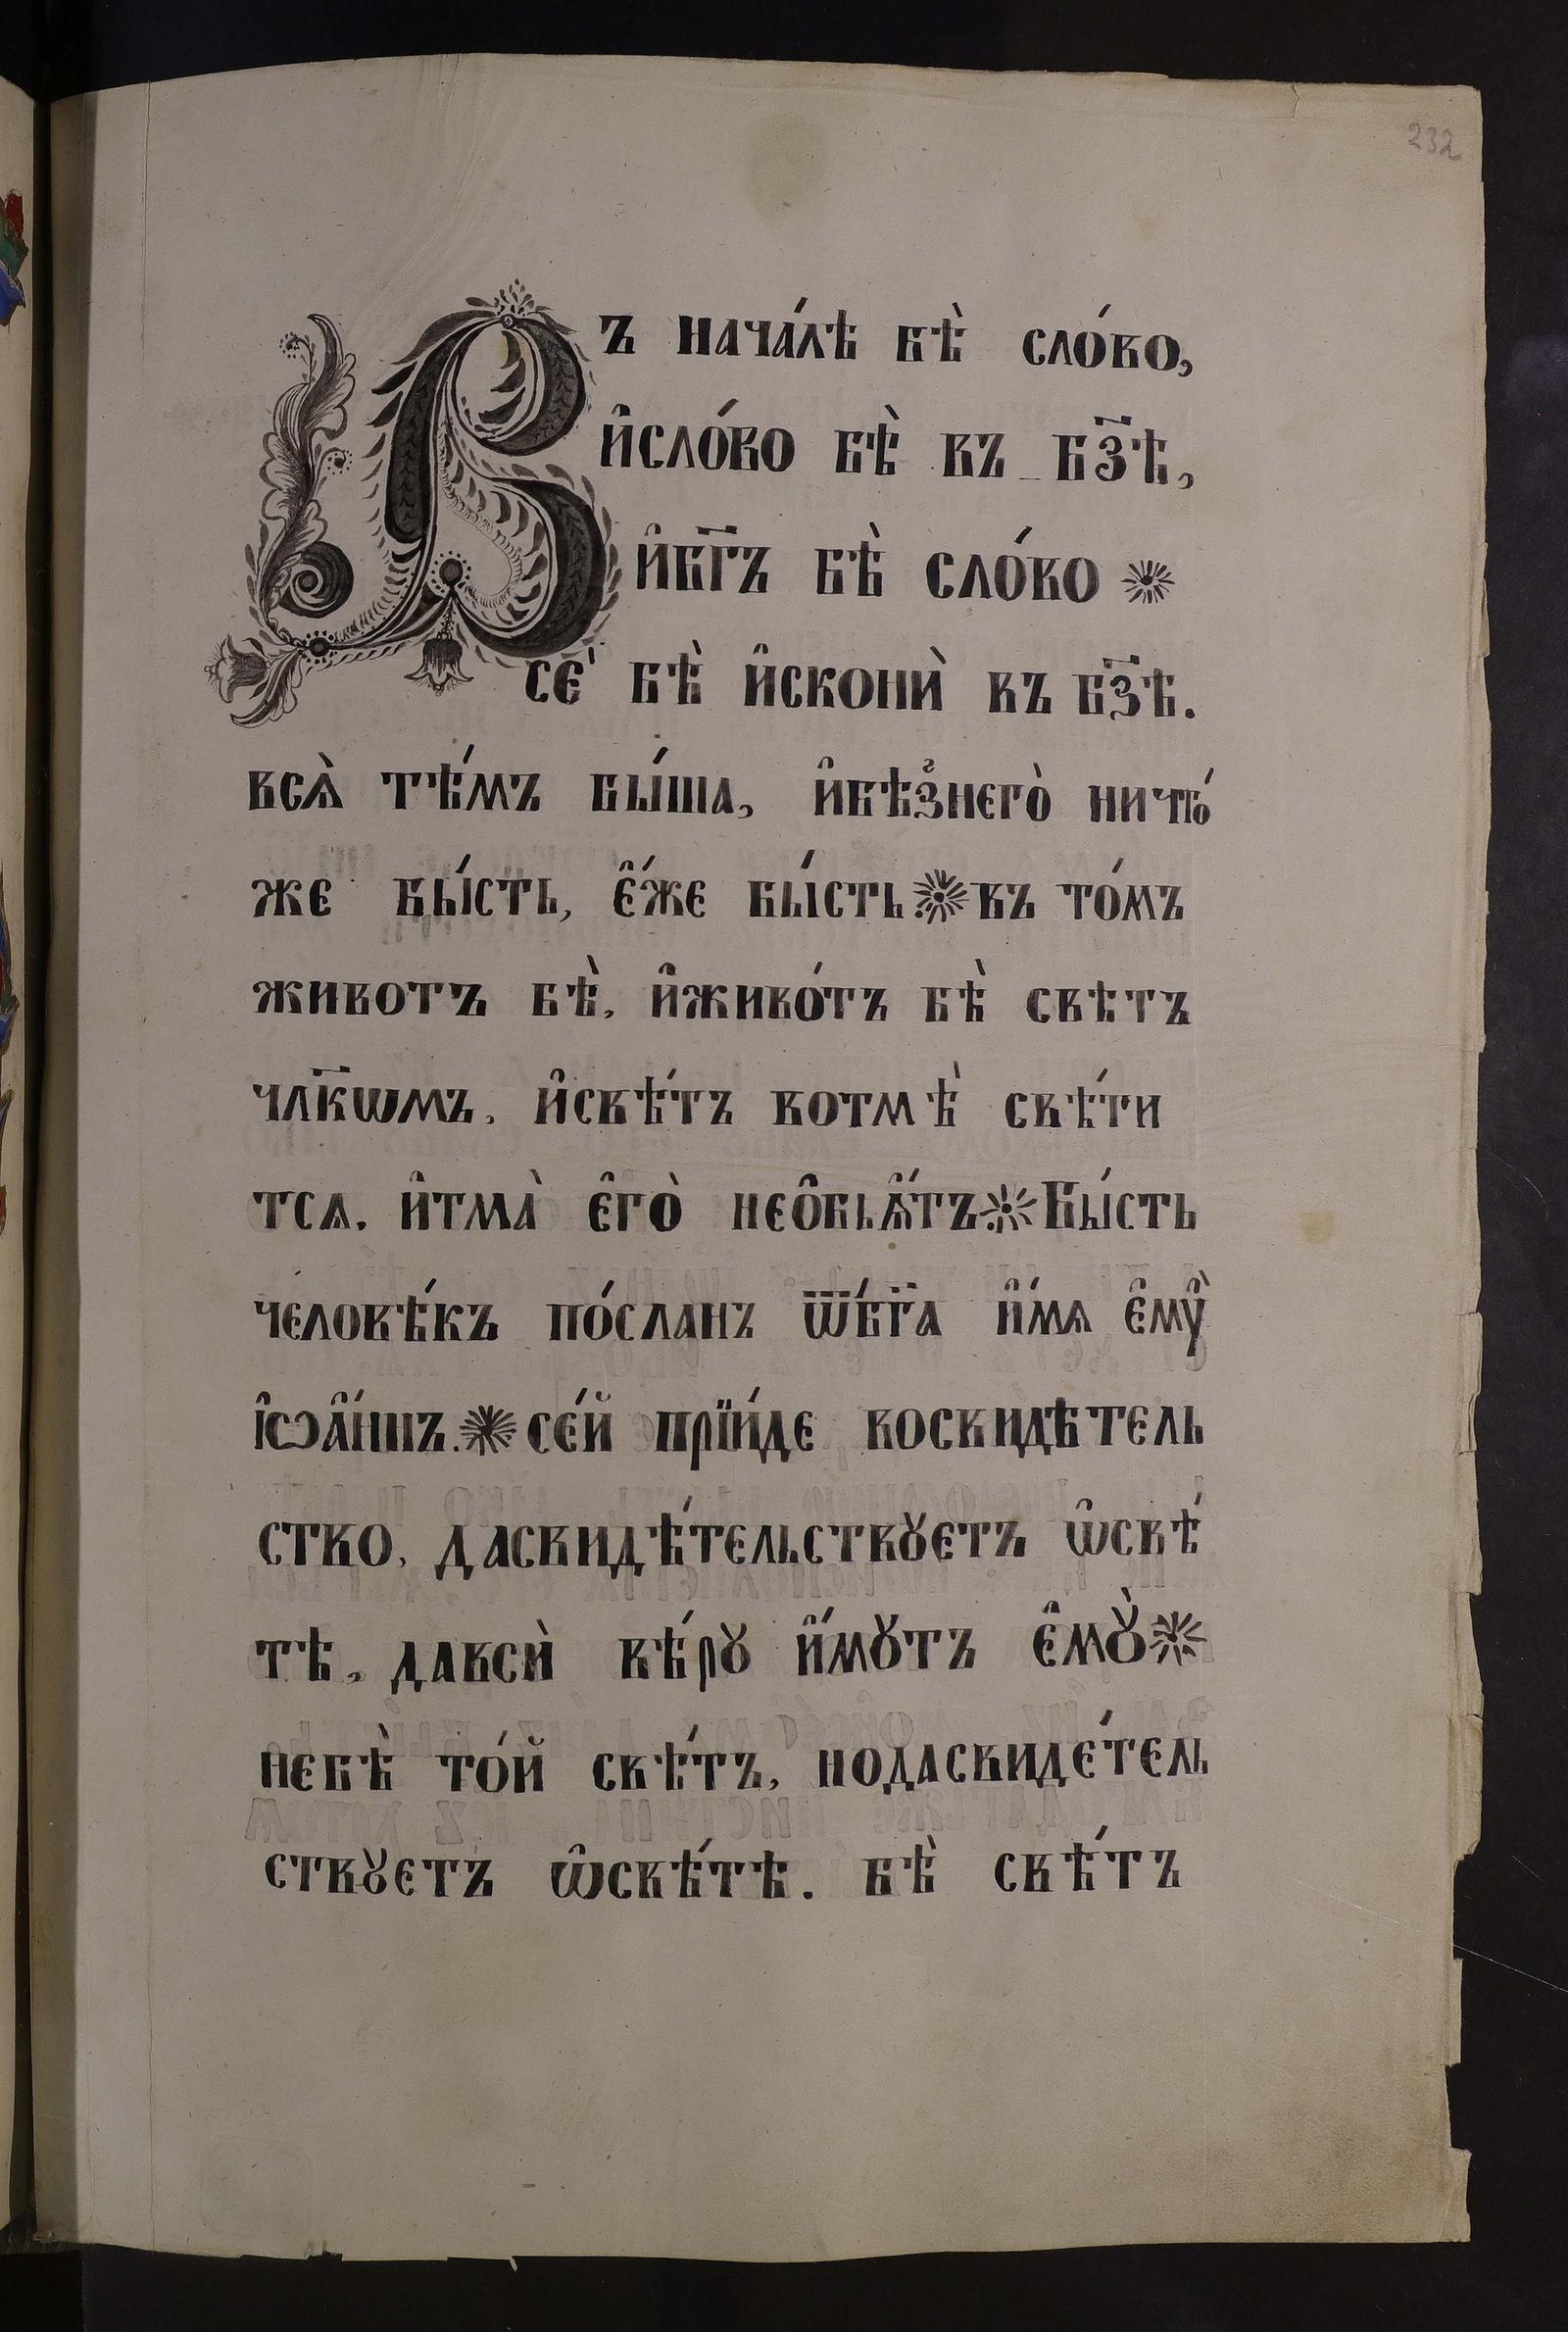 232
Въ нача́лѣ бѣ̀ сло́во,
и҆сло́во бѣ̀ въ бз҃ѣ,
и҆бг҃ъ бѣ̀ сло́во
сє́ бѣ̀ и҆сконѝ въ бз҃ѣ.
всѧ̀ тѣ́мъ бы́ша, и҆бѣз̾нєго̀ ничто́
жє бы́сть, є҆́жє бы́сть въ то́мъ
животъ бѣ̀, и҆живо́тъ бѣ̀ свѣтъ
члк҃ѡмъ, и҆свѣ́тъ вотмѣ̀ свѣ́ти
тсѧ, и҆тма̀ є҆го̀ нєо҆бьѧ҆́тъ Бы́сть
чєловѣ́къ по́сланъ ѿ́бг҃а и҆́мѧ є҆мꙋ̀
і҆ѡа҆́ннъ. сє́й прїи́дє восвидѣтєль
ство, дасвидѣ́тєльствꙋєтъ ѡ҆свѣ́
тѣ, давсѝ вѣ́рꙋ и҆́мꙋтъ є҆мꙋ̀
нєбѣ̀ то́й свѣ́тъ, нодасвидє́тєль
ствꙋєтъ ѡ҆свѣ́тѣ. бѣ̀ свѣ́тъ